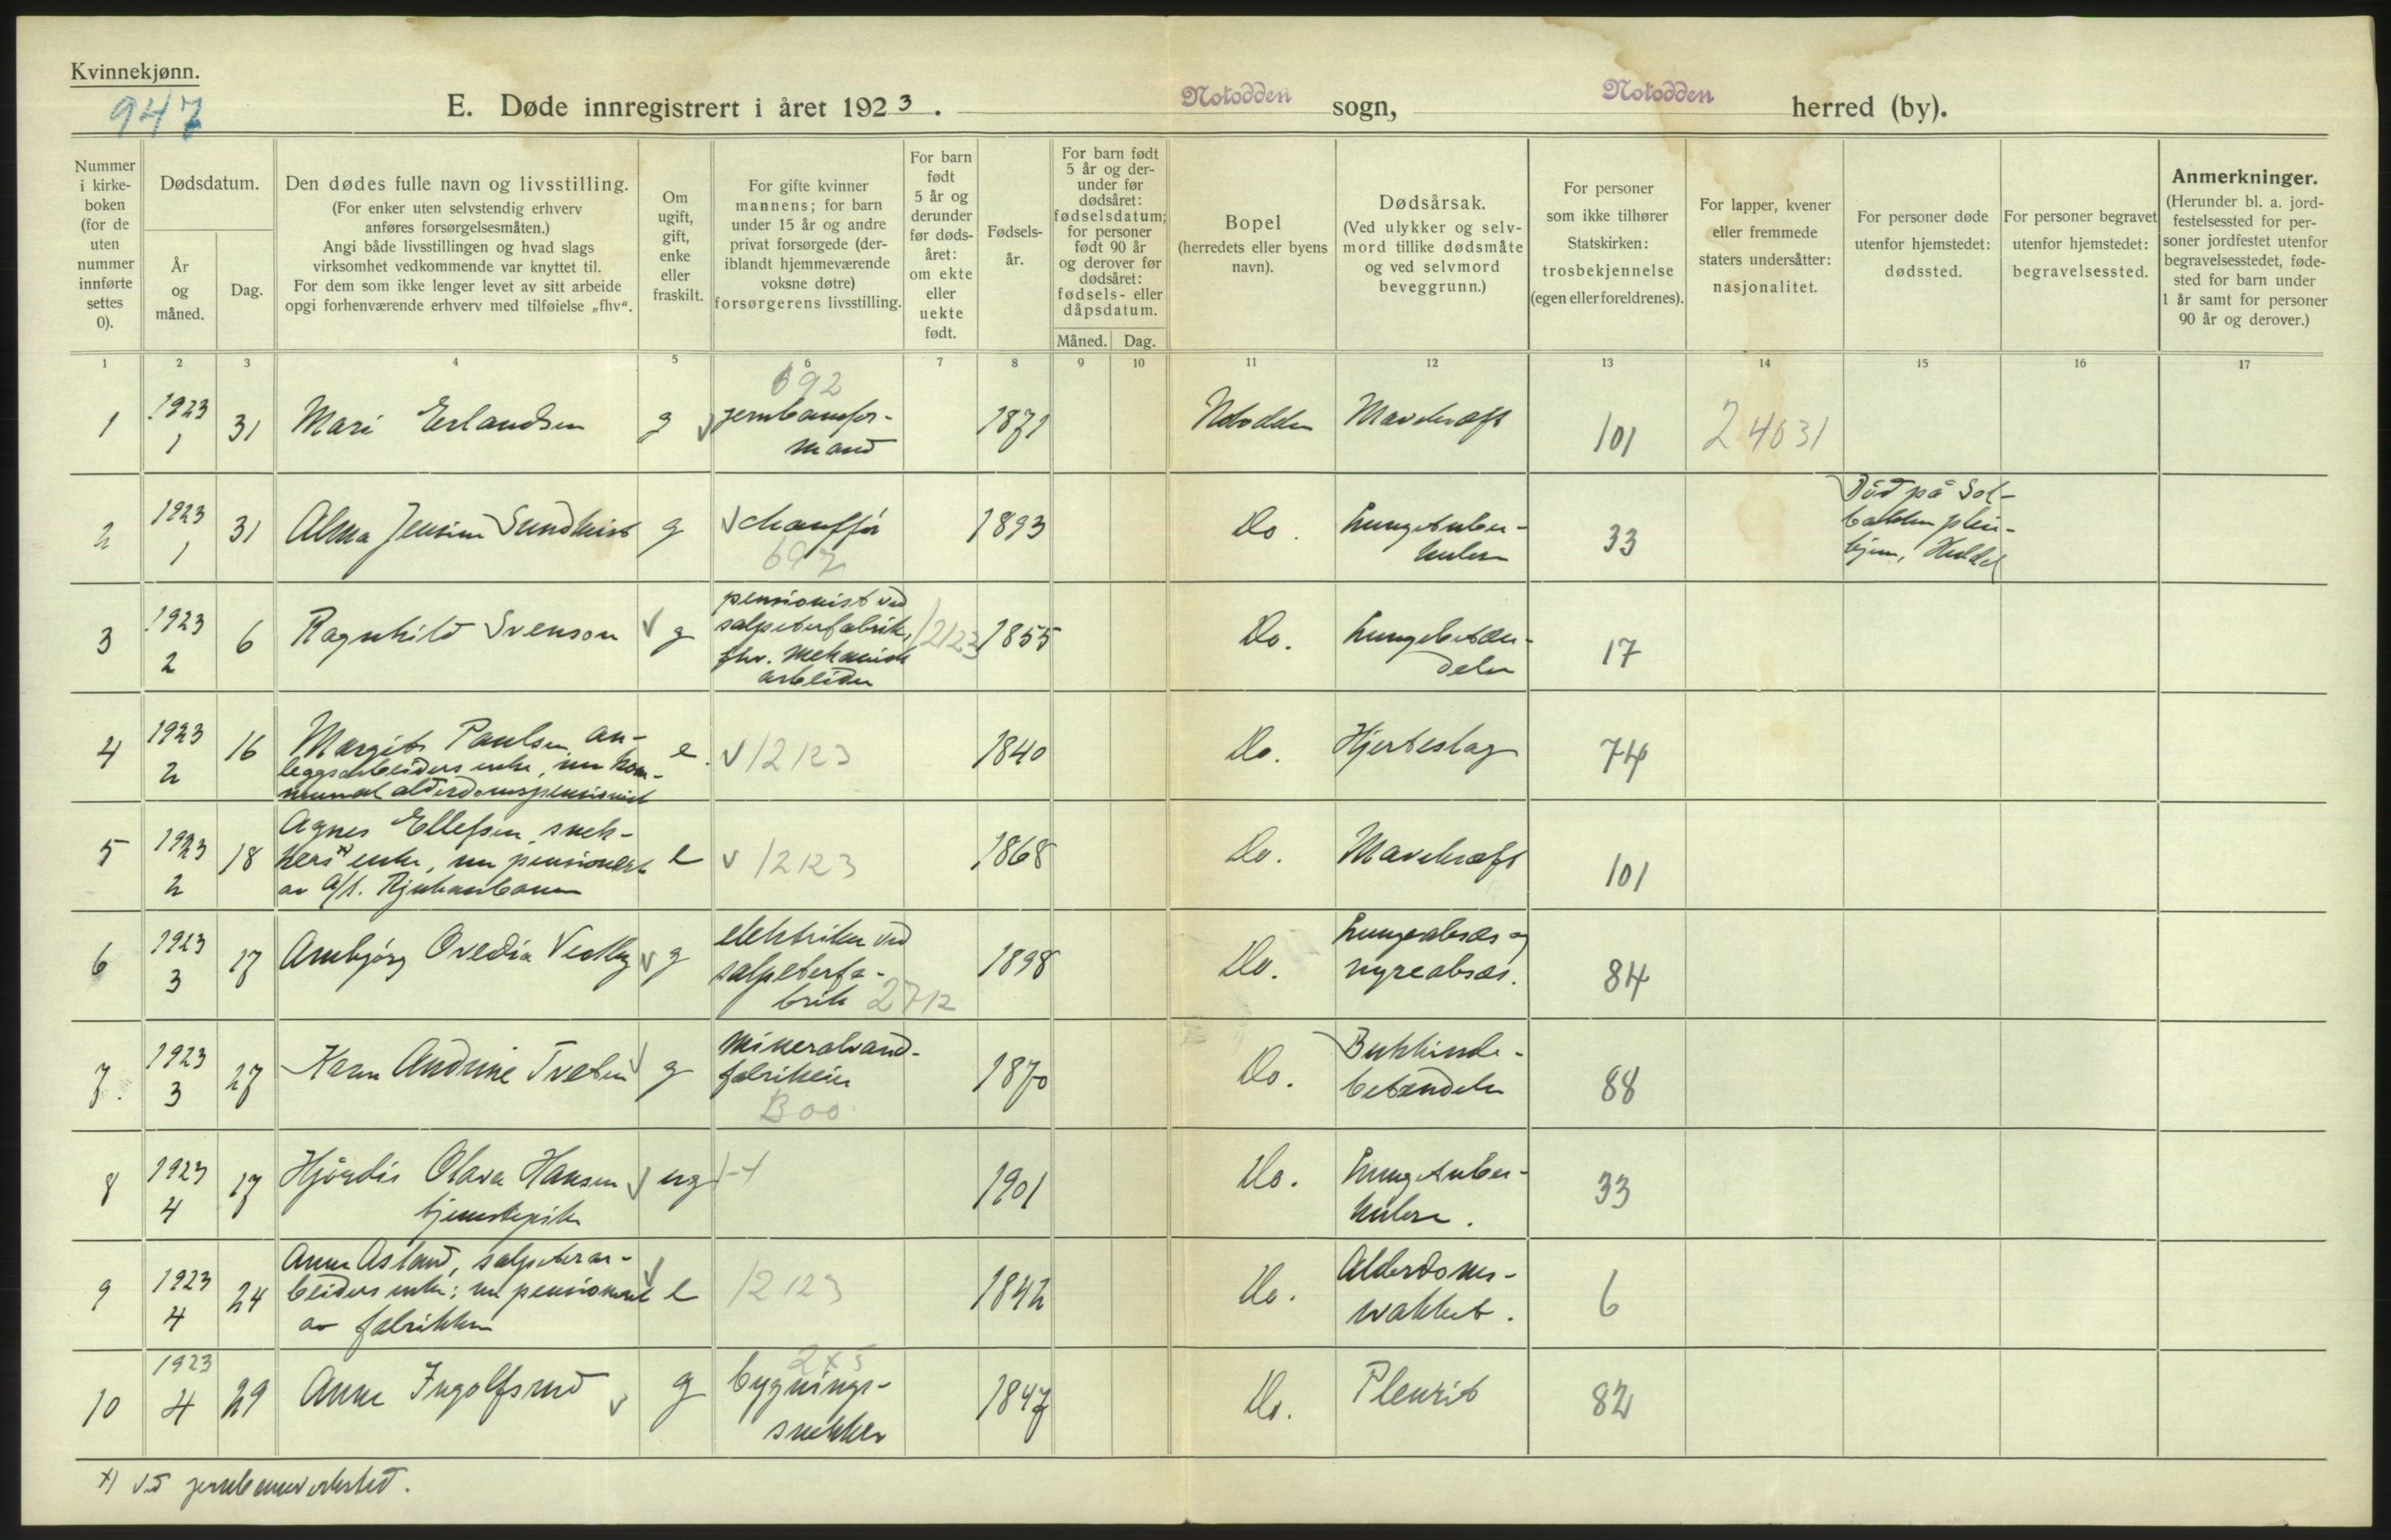 Kvinnekjønn.
947
E. Døde innregistrert i året 1923. Notodden sogn, Notodden herred (by).
Nummer
i kirke-
boken
(for de
uten
nummer
innførte
settes
0).
Dødsdatum.
År
og
måned.
Dag.
Den dødes fulle navn og livsstilling.
(For enker uten selvstendig erhverv
anføres forsørgelsesmåten.)
Angi både livsstillingen og hvad slags
virksomhet vedkommende var knyttet til.
For dem som ikke lenger levet av sitt arbeide
opgi forhenværende erhverv med tilføielse „fhv“.
Om
ugift,
gift,
enke
eller
fraskilt.
For gifte kvinner
mannens; for barn
under 15 år og andre
privat forsørgede (der-
iblandt hjemmeværende
voksne døtre)
forsørgerens livsstilling.
For barn
født
5 år og
derunder
før døds-
året:
om ekte
eller
uekte
født.
Fødsels-
år.
For barn født
5 år og der-
under før
dødsåret:
fødselsdatum;
for personer
født 90 år
og derover før
dødsåret:
fødsels- eller
dåpsdatum.
Måned. Dag.
Bopel
(herredets eller byens
navn).
Dødsårsak.
(Ved ulykker og selv-
mord tillike dødsmåte
og ved selvmord
beveggrunn.)
For personer
som ikke tilhører
Statskirken:
trosbekjennelse
(egen eller foreldrenes).
For lapper, kvener
eller fremmede
staters undersåtter:
nasjonalitet.
For personer døde
utenfor hjemstedet:
dødssted.
For personer begravet
utenfor hjemstedet:
begravelsessted.
Anmerkninger.
(Herunder bl. a. jord-
festelsessted for per-
soner jordfestet utenfor
begravelsesstedet, føde-
sted for barn under
1 år samt for personer
90 år og derover.)
1 2 3 4 5 6 7 8 9 10 11 12 13 14 15 16 17
692
1 1923 31 Mari Erlandsen g jernbanefor- 1871 Notodden Mavekræft 101 24031
1 mand
2 1923 31 Alma Jensine Sundkvist g chauffør 1893 Do. Lungetuber- 33 Død på Sol-
1 697 kulose bakken pleie-
hjem, Heddal
3 1923 6 Ragnhild Svenson g pensionist ved 12123 1855 Do. Lungebetæn- 17
2 salpeterfabrik, delse
fhv. mekanisk
arbeider
4 1923 16 Margit Paulsen, an- e. 12123 1840 Do. Hjerteslag 74
2 leggsarbeiders enke, nu kom-
munal alderdomspensionist
5 1923 18 Agnes Ellefsen, snek- e 12123 1868 Do. Mavekræft 101
2 kers x) enke, nu pensionert
av A/S. Rjukanbanen
6 1923 17 Arnbjørg Ovedia Vedby g elektriker ved 1898 Do. Lungeabsces og 84
3 salpeterfa- nyreabsces.
brik 2712
7. 1923 27 Karen Andrine Tveten g mineralvand- 1870 Do. Bukhinde- 88
3 fabrikeier betændelse
B00
8 1923 17 Hjørdis Olava Hansen ug 1901 Do. Lungetuber- 33
4 tjenestepike kulose.
9 1923 24 Anne Åsland, salpeterar- e 12123 1842 Do. Alderdoms- 6
4 beiders enke; nu pensionert svakhet.
av fabrikken
2x5
10 1923 29 Anne Ingolfsrud g bygnings- 1847 Do. Pleurit 82
4 snekker
x) ved jernbaneverksted.